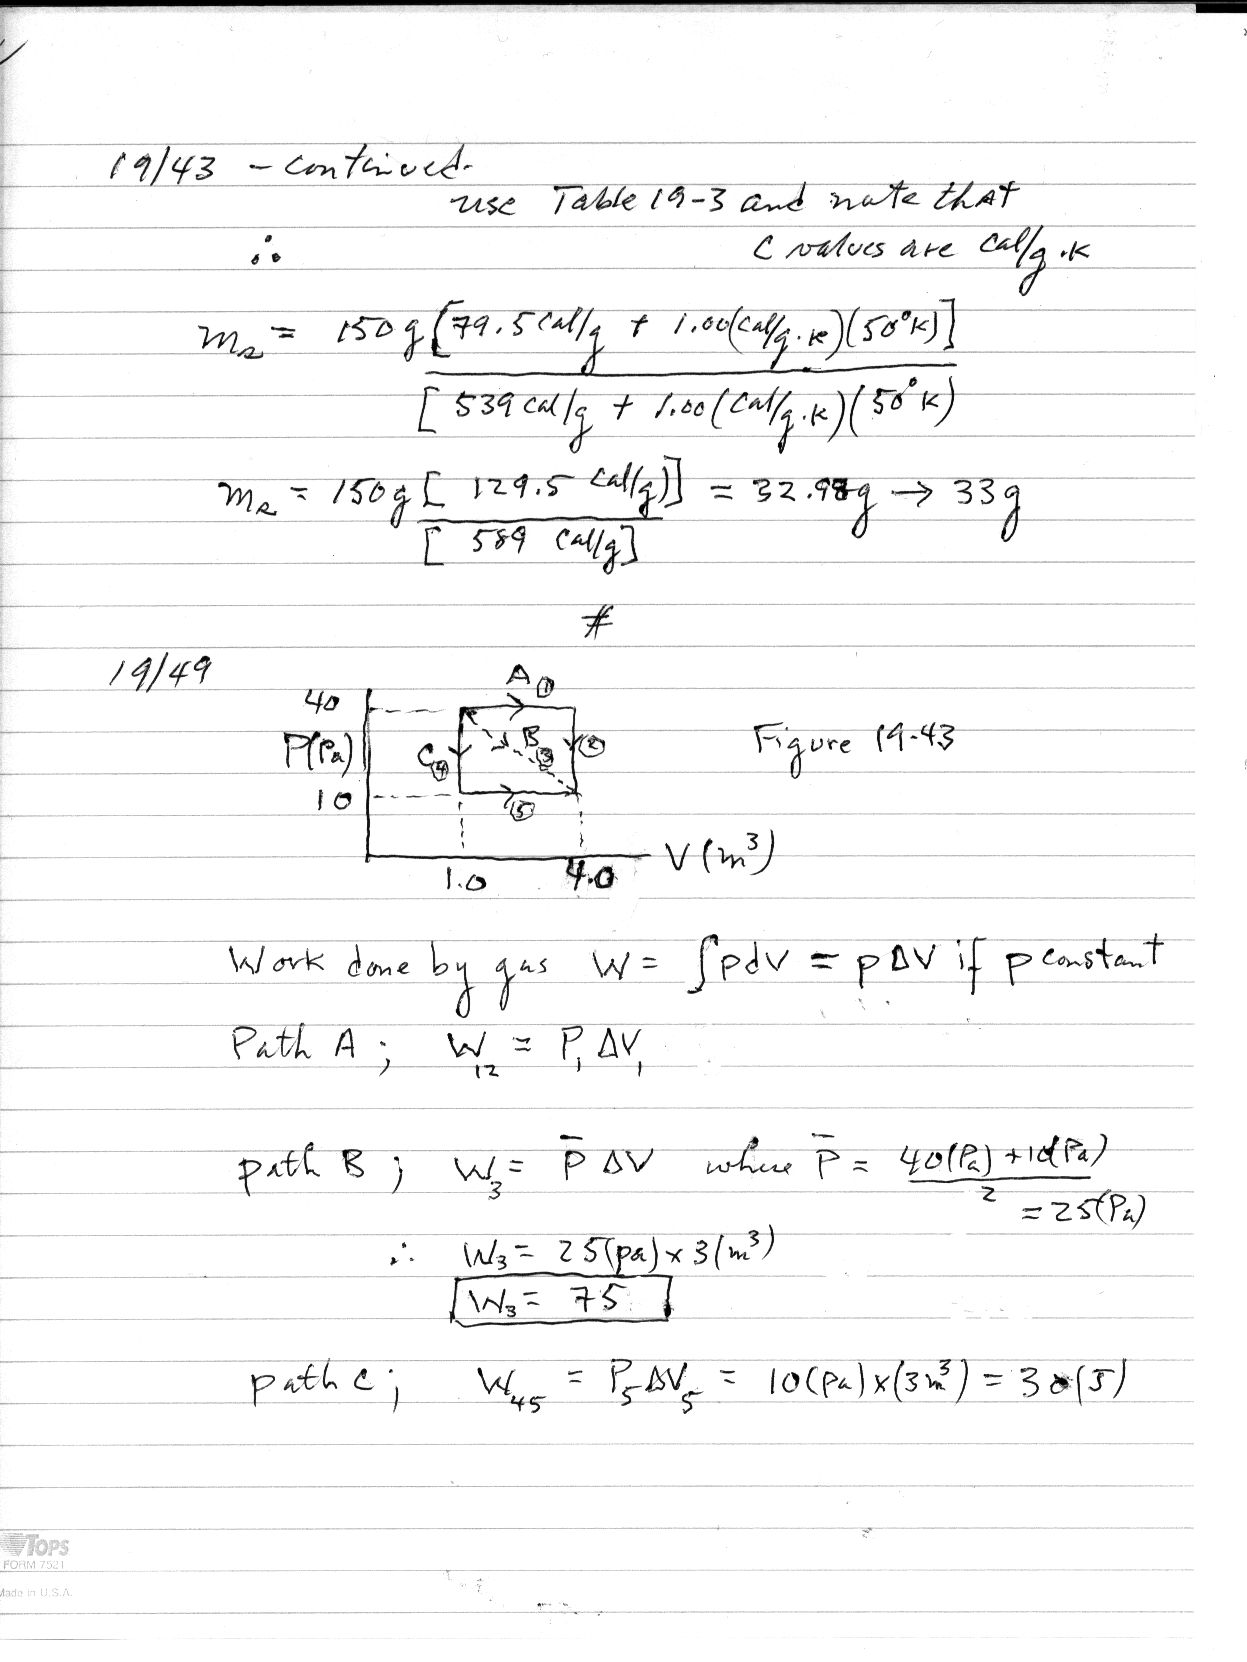 19/43 - continued.
use Table 19-3 and note that
∴ C values are Cal/g.K
m₂ = 150g [79.5 Cal/g + 1.00(Cal/g.K)(50°K)]
[539 Cal/g + 1.00(Cal/g.K)(50°K)
m₂ = 150g [129.5 Cal/g)] = 32.98g → 33g
[589 Cal/g]
#
19/49
A ①
40
P(Pa) C④ B ③ ② Figure 19-43
10
⑤
V (m³)
1.0 4.0
Work done by gas W = ∫pdV = pΔV if p constant
Path A; W₁₂ = P₁ΔV₁
path B; W₃ = P̄ ΔV where P̄ = 40(Pa)+10(Pa)
2
= 25(Pa)
∴ W₃ = 25(pa) x 3(m³)
W₃ = 75
path C; W₄₅ = P₅ΔV₅ = 10(Pa)x(3m³) = 30(J)
TOPS
FORM 7521
Made in U.S.A.